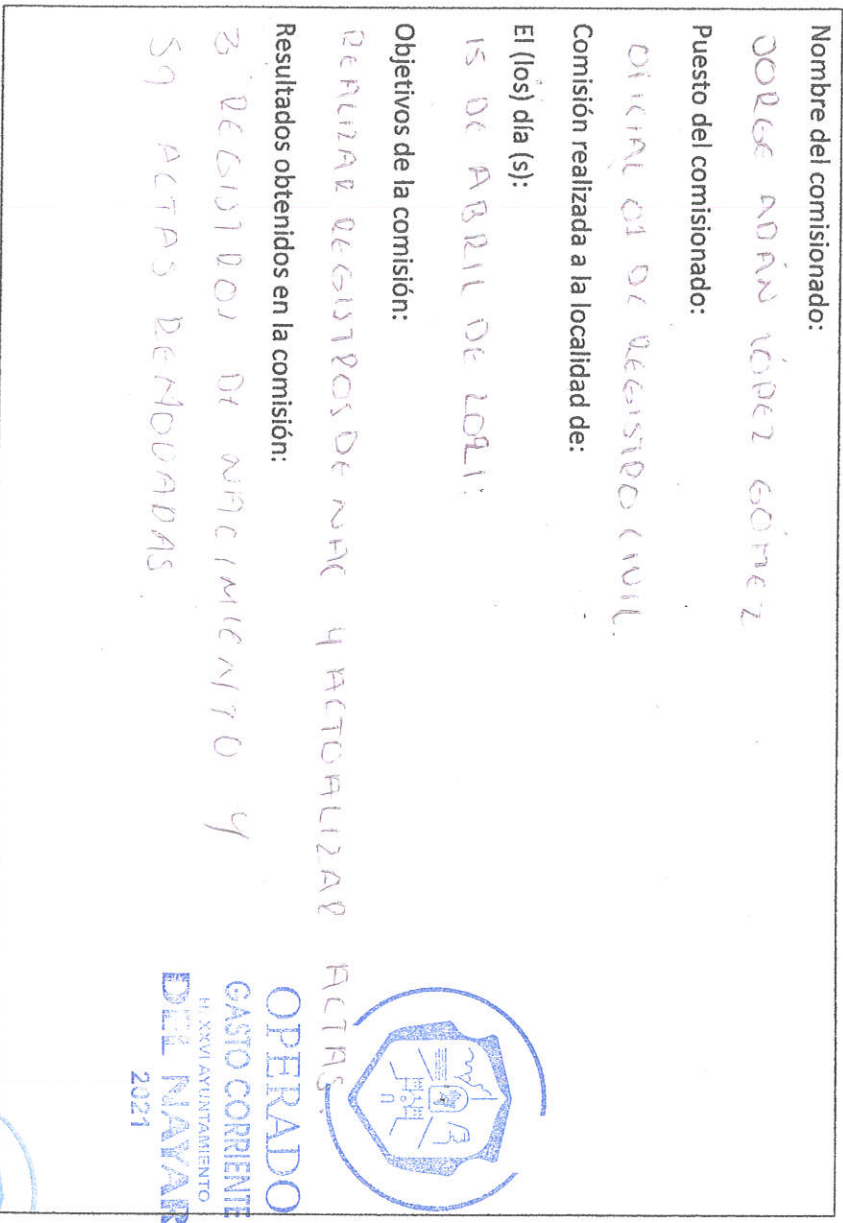 Nombre del comisionado:
JORGE ADÁN LÓPEZ GÓMEZ
Puesto del comisionado:
OFICIAL 01 DE REGISTRO CIVIL.
Comisión realizada a la localidad de:
El (los) día (s):
15 DE ABRIL DE 2021.
Objetivos de la comisión:
REALIZAR REGISTROS DE NAC Y ACTUALIZAR ACTAS.
Resultados obtenidos en la comisión:
3 REGISTROS DE NACIMIENTO Y
59 ACTAS RENOVADAS
OPERADO
GASTO CORRIENTE
H. XXVI AYUNTAMIENTO
DEL NAYAR
2021